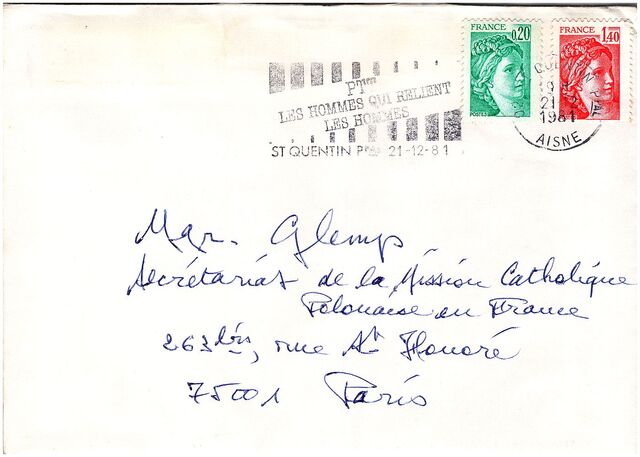 FRANCE 0,20
FRANCE 1,40
PTT
LES HOMMES QUI RELIENT
LES HOMMES
ST QUENTIN Pal 21-12-81
QUENTIN P.AL
21
1981
AISNE
Mgr. Glemp
Secrétariat de la Mission Catholique
Polonaise en France
263 bis, rue St Honoré
75001 Paris